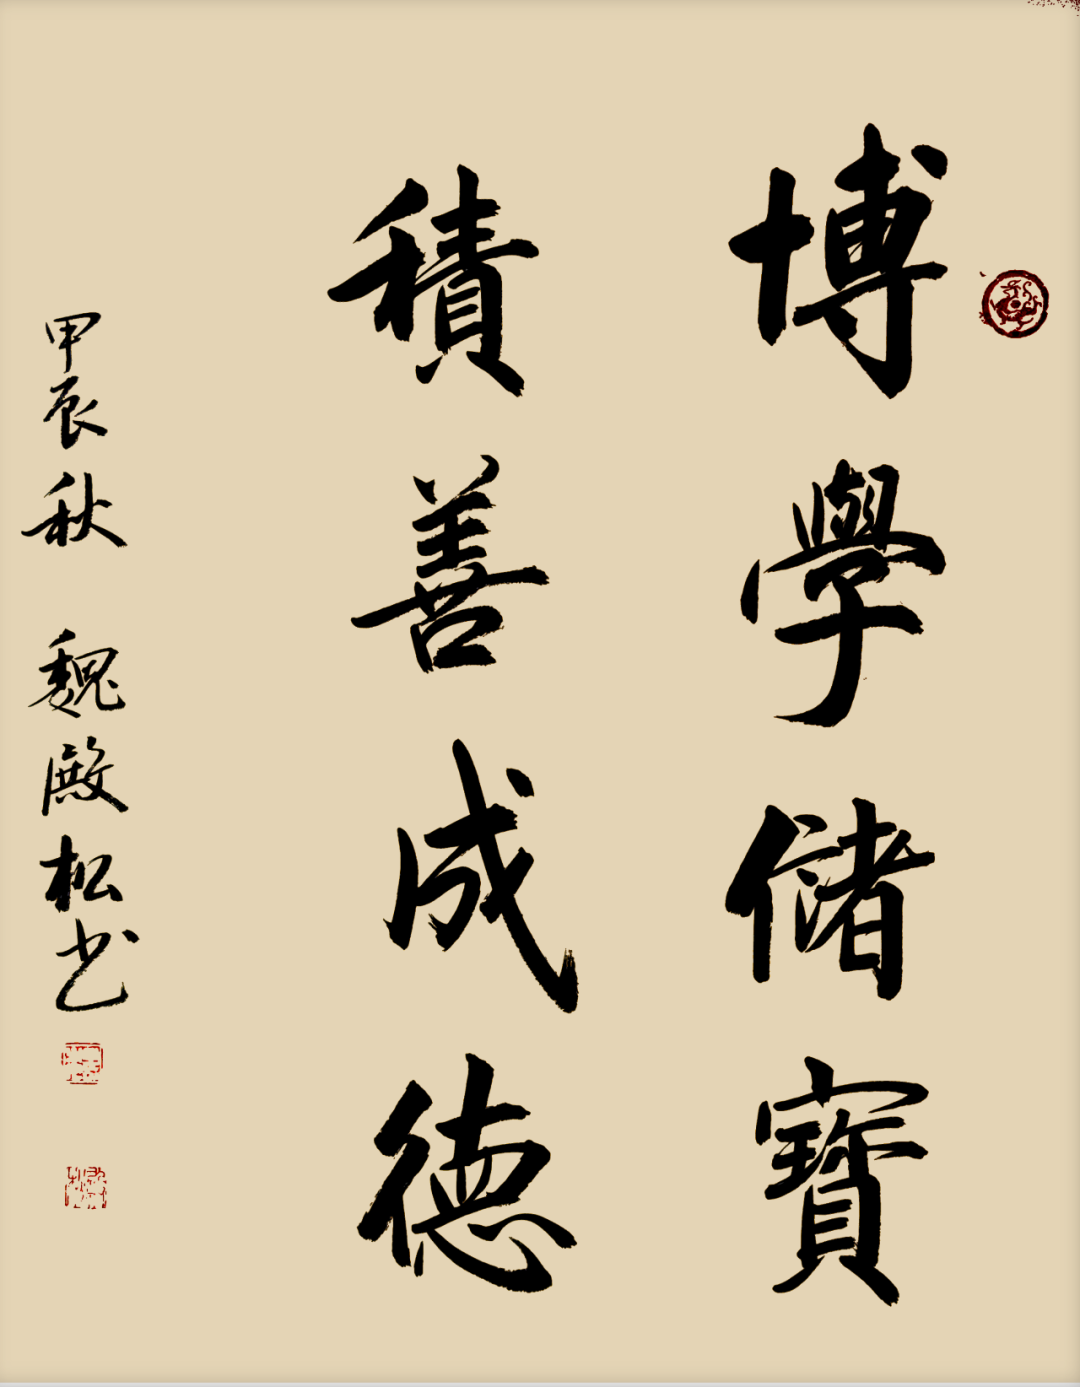 博學儲寶
積善成德
甲辰秋 魏殿松书